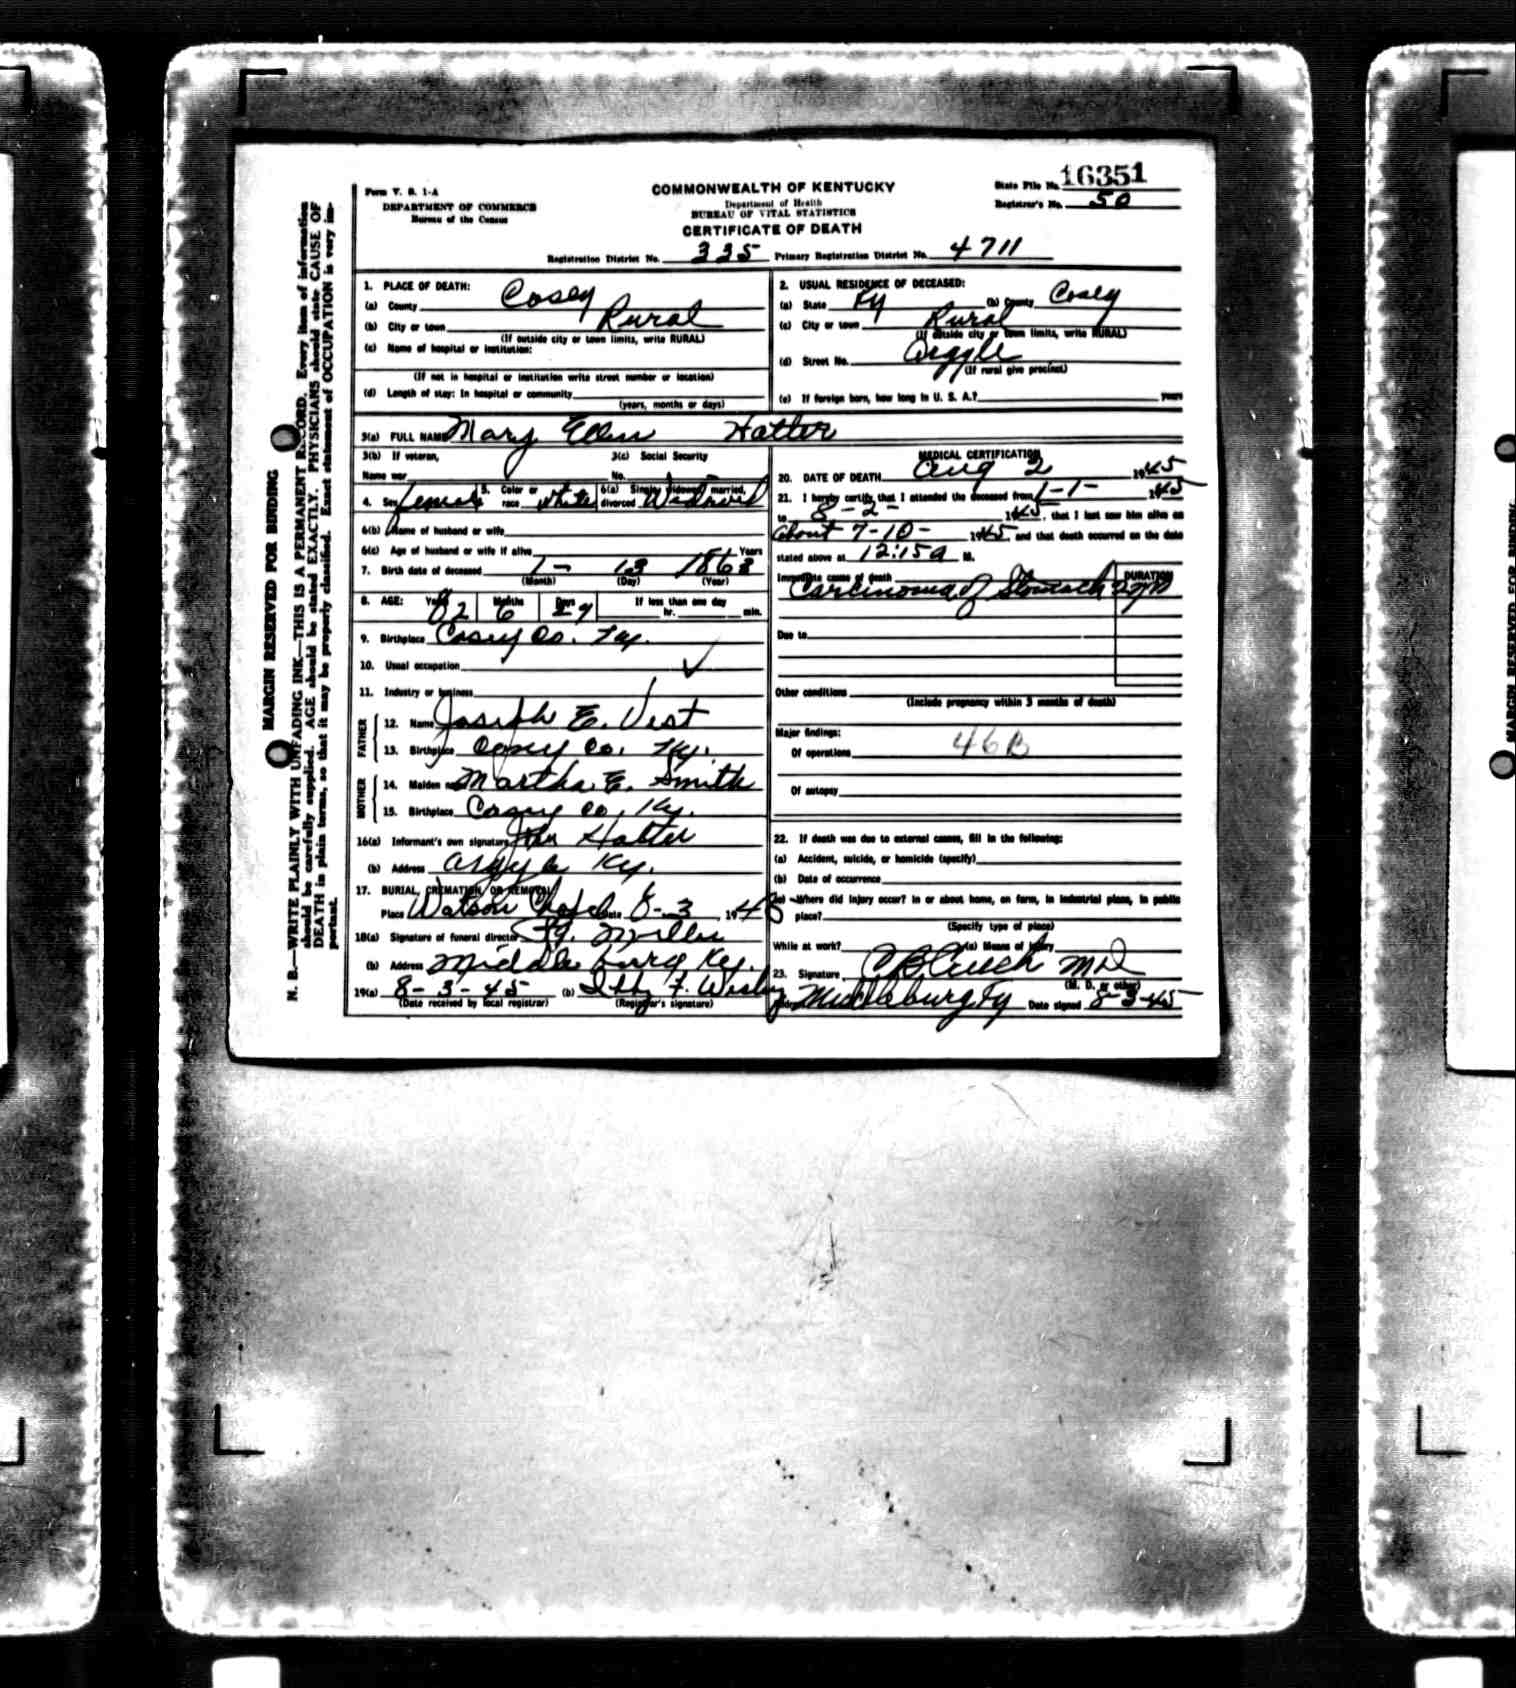 Form V. S. 1-A
DEPARTMENT OF COMMERCE
Bureau of the Census
COMMONWEALTH OF KENTUCKY
Department of Health
BUREAU OF VITAL STATISTICS
CERTIFICATE OF DEATH
State File No. 16351
Registrar's No. 50
Registration District No. 335 Primary Registration District No. 4711
1. PLACE OF DEATH:
(a) County Casey
(b) City or town Rural
(If outside city or town limits, write RURAL)
(c) Name of hospital or institution:
(If not in hospital or institution write street number or location)
(d) Length of stay: In hospital or community
(years, months or days)
2. USUAL RESIDENCE OF DECEASED:
(a) State Ky (b) County Casey
(c) City or town Rural
(If outside city or town limits, write RURAL)
(d) Street No. Argyle
(If rural give precinct)
(e) If foreign born, how long in U. S. A.? years
3(a) FULL NAME Mary Ellen Hatter
3(b) If veteran, 3(c) Social Security
Name war No.
4. Sex female 5. Color or race white 6(a) Single, widowed, married, divorced Widowed
6(b) Name of husband or wife
6(c) Age of husband or wife if alive Years
7. Birth date of deceased 1- 13 1863
(Month) (Day) (Year)
8. AGE: Years 82 Months 6 Days If less than one day
hr. min.
9. Birthplace Casey Co. Ky.
10. Usual occupation
11. Industry or business
FATHER
12. Name Joseph E. Vest
13. Birthplace Casey Co. Ky.
MOTHER
14. Maiden name Martha E. Smith
15. Birthplace Casey Co. Ky.
16(a) Informant's own signature John Hatter
(b) Address Argyle Ky.
17. BURIAL, CREMATION, OR REMOVAL
Place Watson Chapel Date 8-3, 1945
18(a) Signature of funeral director
(b) Address Middleburg Ky.
19(a) 8-3-45 (b) F.
(Date received by local registrar) (Registrar's signature)
MEDICAL CERTIFICATION
20. DATE OF DEATH Aug 2 1945
21. I hereby certify that I attended the deceased from 1-1- 1945
to 8-2- 1945, that I last saw him alive on
about 7-10- 1945 and that death occurred on the date
stated above at 12:15a M.
Immediate cause of death DURATION
Carcinoma of Stomach
Due to
Other conditions
(Include pregnancy within 3 months of death)
Major findings:
Of operations 46B
Of autopsy
22. If death was due to external causes, fill in the following:
(a) Accident, suicide, or homicide (specify)
(b) Date of occurrence
(c) Where did injury occur? In or about home, on farm, in industrial place, in public
place?
(Specify type of place)
While at work? (e) Means of injury
23. Signature MD
(M. D. or other)
Address Middleburg Ky Date signed 8-3-45
MARGIN RESERVED FOR BINDING
N. B.—WRITE PLAINLY WITH UNFADING INK—THIS IS A PERMANENT RECORD. Every item of information
should be carefully supplied. AGE should be stated EXACTLY. PHYSICIANS should state CAUSE OF
DEATH in plain terms, so that it may be properly classified. Exact statement of OCCUPATION is very im-
portant.
MARGIN RESERVED FOR BINDING